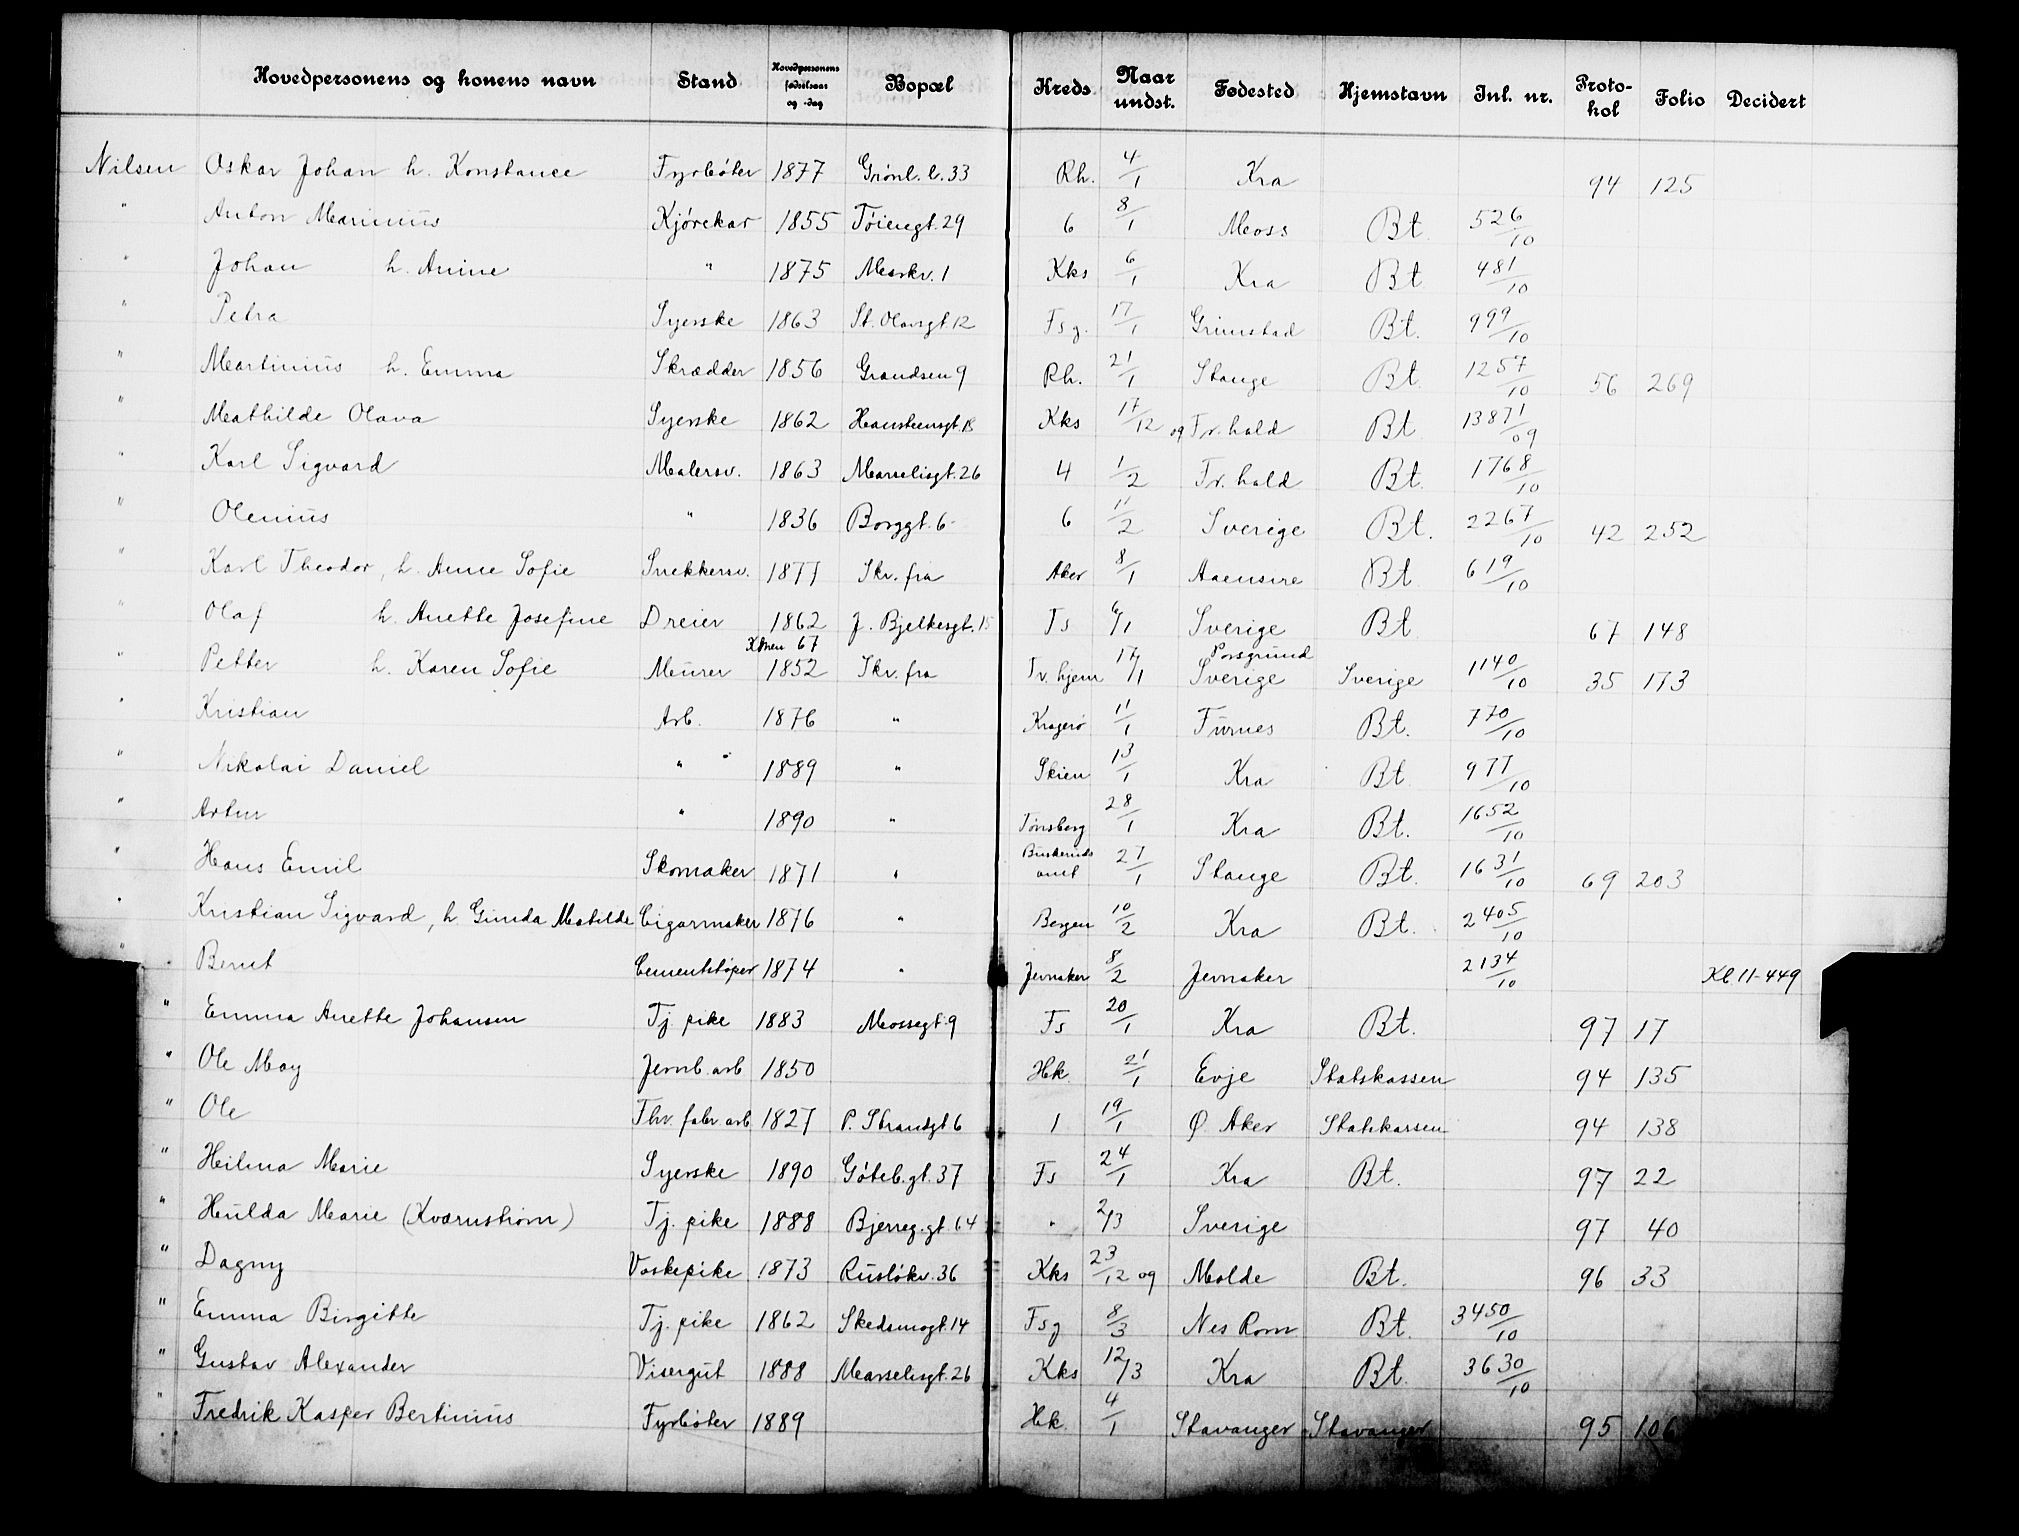 Hovedpersonens og konens navn | Stand | Hovedpersonens fødselsaar og -dag | Bopæl | Kreds | Naar undst. | Fødested | Hjemstavn | Inl. nr. | Protokol | Folio | Decidert
Nilsen Oskar Johan h. Konstance | Fyrbøter | 1877 | Grønl. l. 33 | Rh. | 4/1 | Kra | 94 | 125
" Anton Marinius | Kjørekar | 1855 | Tøiengt. 29 | 6 | 8/1 | Moss | Bt. | 526/10
" Johan h. Anine | " | 1875 | Maskv. 1 | Kks | 6/1 | Kra | Bt | 481/10
" Petra | Syerske | 1863 | St. Olavsgt. 12 | Fsg. | 17/1 | Grimstad | Bt. | 999/10
" Martinius h. Emma | Skrædder | 1856 | Grandsen 9 | Rh. | 21/1 | Stange | Bt. | 1257/10 | 56 | 269
" Mathilde Olava | Syerske | 1862 | Hansteensgt. 18 | Kks | 17/12 09 | Fr. hald | Bt | 13871/09
" Karl Sigvard | Malersv. | 1863 | Marselisgt. 26 | 4 | 1/2 | Fr. hald | Bt. | 1768/10
" Olenius | " | 1836 | Borggt. 6 | 6 | 11/2 | Sverige | Bt. | 2267/10 | 42 | 252
" Karl Theodor, h. Anne Sofie | Snekkersv. | 1877 | Skr. fra | Aker | 8/1 | Aaensire | Bt | 619/10
" Olaf h. Anette Josefine | Dreier | 1862 | J. Bjelkesgt. 15 | Fs | 6/1 | Sverige | Bt | 67 | 148
Konen 67 | Porsgrund
" Petter h. Karen Sofie | Murer | 1852 | Skr. fra | Fr. hjem | 17/1 | Sverige | Sverige | 1140/10 | 35 | 173
" Kristian | Arb. | 1876 | " | Kragerø | 11/1 | Furnes | Bt. | 770/10
" Nikolai Daniel | " | 1889 | " | Skien | 13/1 | Kra | Bt | 977/10
" Artur | " | 1890 | " | Tønsberg | 28/1 | Kra | Bt. | 1652/10
" Hans Emil | Skomaker | 1871 | " | Buskeruds amt | 27/1 | Stange | Bt. | 1631/10 | 69 | 203
" Kristian Sigvard, h. Ginda Matilde | Cigarmaker | 1876 | " | Bergen | 10/2 | Kra | Bt. | 2405/10
" Bernt | Cementstøper | 1874 | " | Jevnaker | 8/2 | Jevnaker | 2134/10 | Kl. 11-449
" Emma Anette Johansen | Tj. pike | 1883 | Mossegt. 9 | Fs | 20/1 | Kra | Bt. | 97 | 17
" Ole May | Jernb. arb | 1850 | Hk. | 21/1 | Evje | Statskassen | 94 | 135
" Ole | Fhv. fabr arb | 1827 | P. Strandgt 6 | 1 | 19/1 | Ø. Aker | Statskassen | 94 | 138
" Hilma Marie | Syerske | 1890 | Göteb. gt. 37 | Fs | 24/1 | Kra | Bt. | 97 | 22
" Hulda Marie (Kvarnstrøm) | Tj. pike | 1888 | Bjerreg. gt. 64 | " | 2/3 | Sverige | 97 | 40
" Dagny | Vaskepike | 1873 | Rusløkv. 36 | Kks | 23/12 09 | Molde | Bt. | 96 | 33
" Emma Birgitte | Tj. pike | 1862 | Skedsmogt. 14 | Fsg | 8/3 | Nes Rom | Bt. | 3450/10
" Gustav Alexander | Visergut | 1888 | Marselisgt. 26 | Kks | 12/3 | Kra | Bt. | 3630/10
" Fredrik Kasper Bertinius | Fyrbøter | 1889 | Hk. | 4/1 | Stavanger | Stavanger | 95 | 106